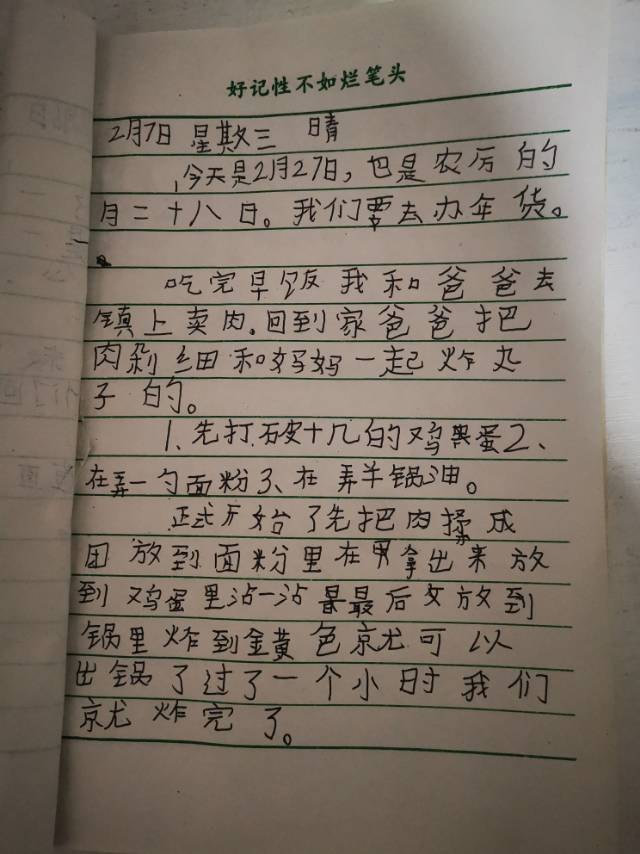 好记性不如烂笔头
2月7日 星期三 晴
今天是2月27日,也是农历的
月二十八日。我们要去办年货。
吃完早饭我和爸爸去
镇上卖肉.回到家爸爸把
肉剁细和妈妈一起炸丸
子的。
1、先打破十几的鸡蛋2、
在弄一勺面粉3、在弄半锅油。
正式开始了先把肉揉成
团放到面粉里在拿出来放
到鸡蛋里沾一沾最后放到
锅里炸到金黄色就可以
出锅了过了一个小时我们
就炸完了。